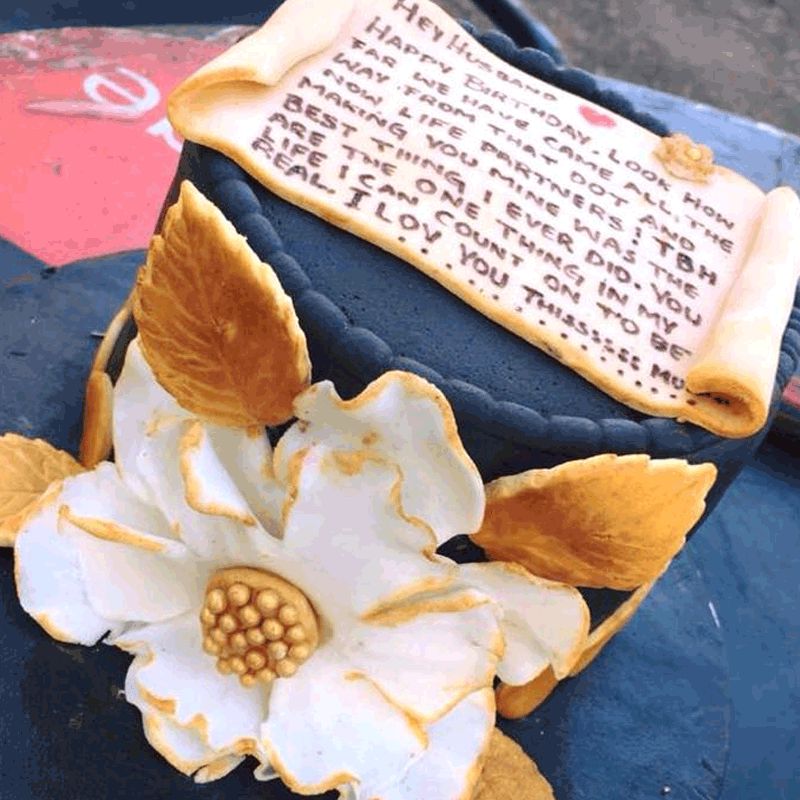 HEY HUSBAND
HAPPY BIRTHDAY. LOOK HOW
FAR WE HAVE CAME ALL. THE
WAY FROM THAT DOT AND
NOW LIFE PARTNERS! TBH
MAKING YOU MINE WAS THE
BEST THING I EVER DID. YOU
ARE THE ONE THING IN MY
LIFE I CAN COUNT ON TO BE
REAL. I LOV YOU THISSSSSSS MU